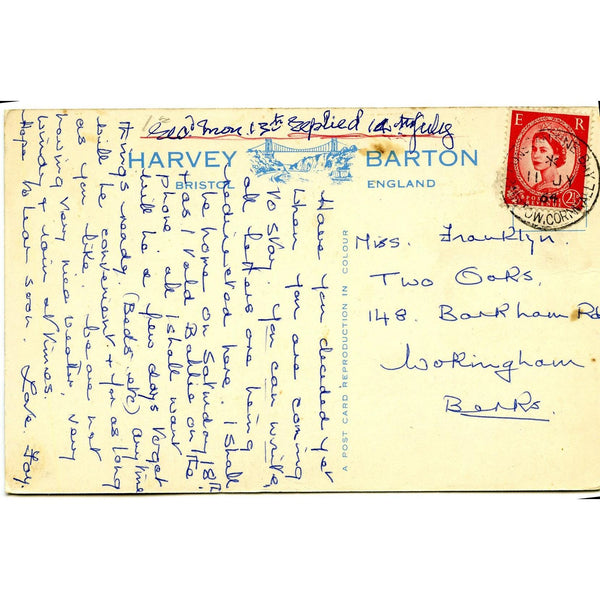 Rec'd Mon. 13th Replied 14th July
HARVEY BARTON
BRISTOL ENGLAND
E R
2½
11 JY
64
LOW, CORNWALL
Miss. Franklyn.
Two Oaks.
148. Barkham Rd
Wokingham
Berks.
A POST CARD REPRODUCTION IN COLOUR
Have you decided yet
when you are coming
to stay. You can write,
all letters are being
redirected here. I shall
be home on Saturday 18th.
as I told Babbie on the
Phone. all I shall want
will be a few days to get
things ready. (Beds. etc) anytime
will be convenient & for as long
as you like. We are not
having very nice weather, very
windy & rain at times.
Hope to hear soon. Love. Fay.